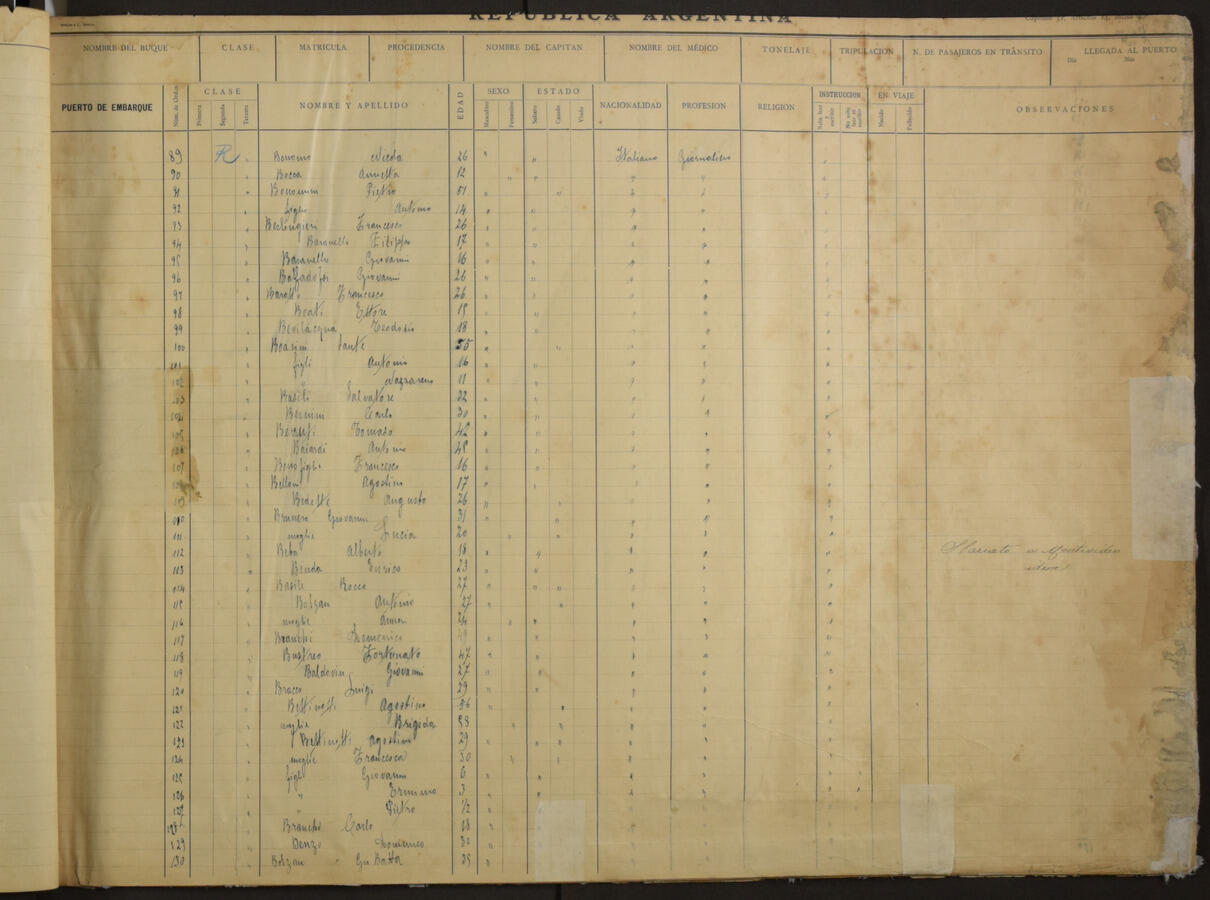 REPUBLICA ARGENTINA
NOMBRE DEL BUQUE CLASE MATRICULA PROCEDENCIA NOMBRE DEL CAPITAN NOMBRE DEL MÉDICO TONELAJE TRIPULACION N. DE PASAJEROS EN TRÁNSITO LLEGADA AL PUERTO
Dia Mes
PUERTO DE EMBARQUE Núm. de Orden CLASE NOMBRE Y APELLIDO EDAD SEXO ESTADO NACIONALIDAD PROFESION RELIGION INSTRUCCION EN VIAJE OBSERVACIONES
Primera Segunda Tercera Masculino Femenino Soltero Casado Viudo Nacido Fallecido
89 R Bonomo 26 " " Italiano Giornaliero
90 Bocca Annetta 12
91 Bonomini Pietro 51
92 figlio Antonio 14
93 Berlingieri Francesco 26
94 Baranello Filippo 17
95 Baranello Giovanni 16
96 Giovanni 26
97 Baratto Francesco 26
98 Beati Ettore 19
99 Bevilacqua Teodosio 18
100 Sante
101 figli Antonio 16
102 Nazzareno 11
103 Basili Salvatore 32
Bernini Carlo 30
105 Tomaso 42
Baiardi Antonio 48
107 Francesco 16
Belloni Agostino 17
Augusto 26
110 Brunero Giovanni 31
111 moglie Lucia 20
112 Alberto 18 Sbarcato a Montevideo
113 Benda Enrico 23 idem
114 Basile Rocco 27
115 Bolzan Antonio 27
116 moglie Anna 24
117 Bianchi Domenico 49
118 Bustreo Fortunato 47
119 Baldovin Giovanni 27
120 Bracco Luigi 29
121 Bettinotti Agostino 56
122 moglie Brigida 58
123 Bettinotti Agostino 29
124 moglie Francesca 30
125 figli Giovanni 6
126 " Erminio 3
127 " Pietro 1/2
128 Carlo 18
129 Domenico 32
130 Bolzan Gio Batta